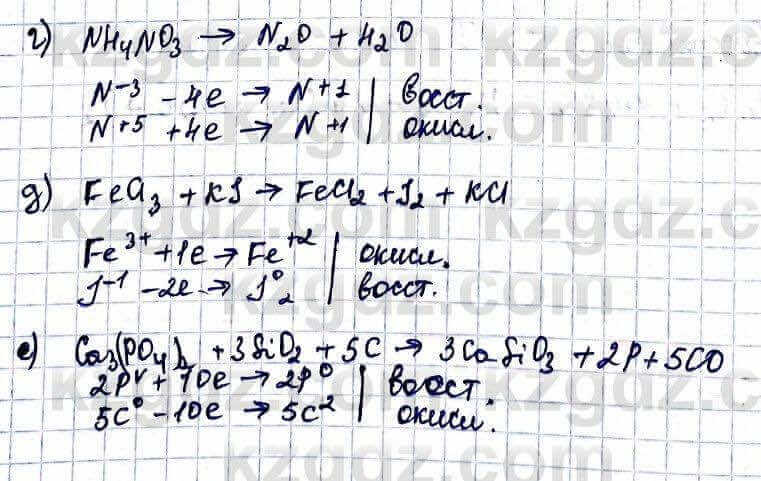 г) NH₄NO₃ → N₂O + H₂O
N⁻³ - 4e → N⁺¹ | восст.
N⁺⁵ + 4e → N⁺¹ | окисл.
д) FeCl₃ + KJ → FeCl₂ + J₂ + KCl
Fe³⁺ + 1e → Fe⁺² | окисл.
J⁻¹ - 2e → J⁰₂ | восст.
е) Ca₃(PO₄)₂ + 3SiO₂ + 5C → 3CaSiO₃ + 2P + 5CO
2P⁺⁵ + 10e → 2P⁰ | восст.
5C⁰ - 10e → 5C² | окисл.